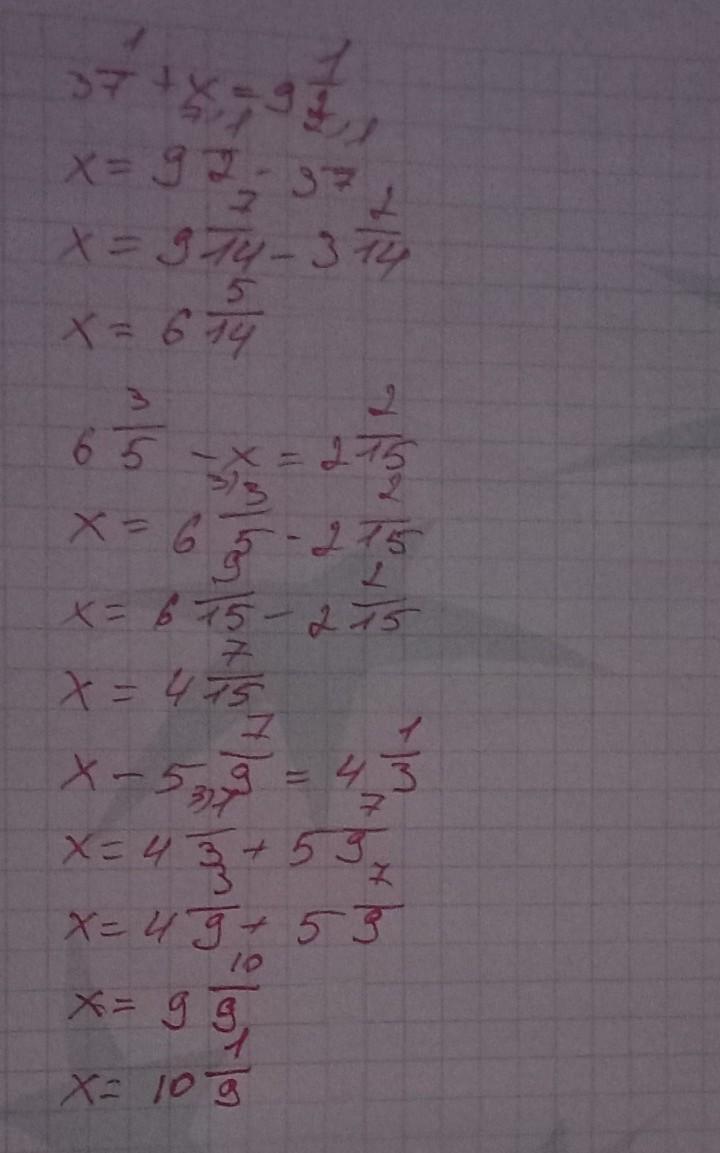 3 1/7 + x = 9 1/2
x = 9 7)1/2 - 3 2)1/7
x = 9 7/14 - 3 2/14
x = 6 5/14
6 3/5 - x = 2 2/15
x = 6 3)3/5 - 2 2/15
x = 6 9/15 - 2 2/15
x = 4 7/15
x - 5 7/9 = 4 1/3
x = 4 3)1/3 + 5 7/9
x = 4 3/9 + 5 7/9
x = 9 10/9
x = 10 1/9